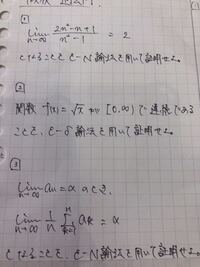 [1]
lim n→∞ 2n²-n+1 / n²-1 = 2
となることを ε-N 論法を用いて証明せよ。
[2]
関数 f(x)=√x が [0,∞) で連続である
ことを、ε-δ 論法を用いて証明せよ。
[3]
lim n→∞ an = α のとき、
lim n→∞ 1/n Σ k=1 n ak = α
となることを、ε-N 論法を用いて証明せよ。